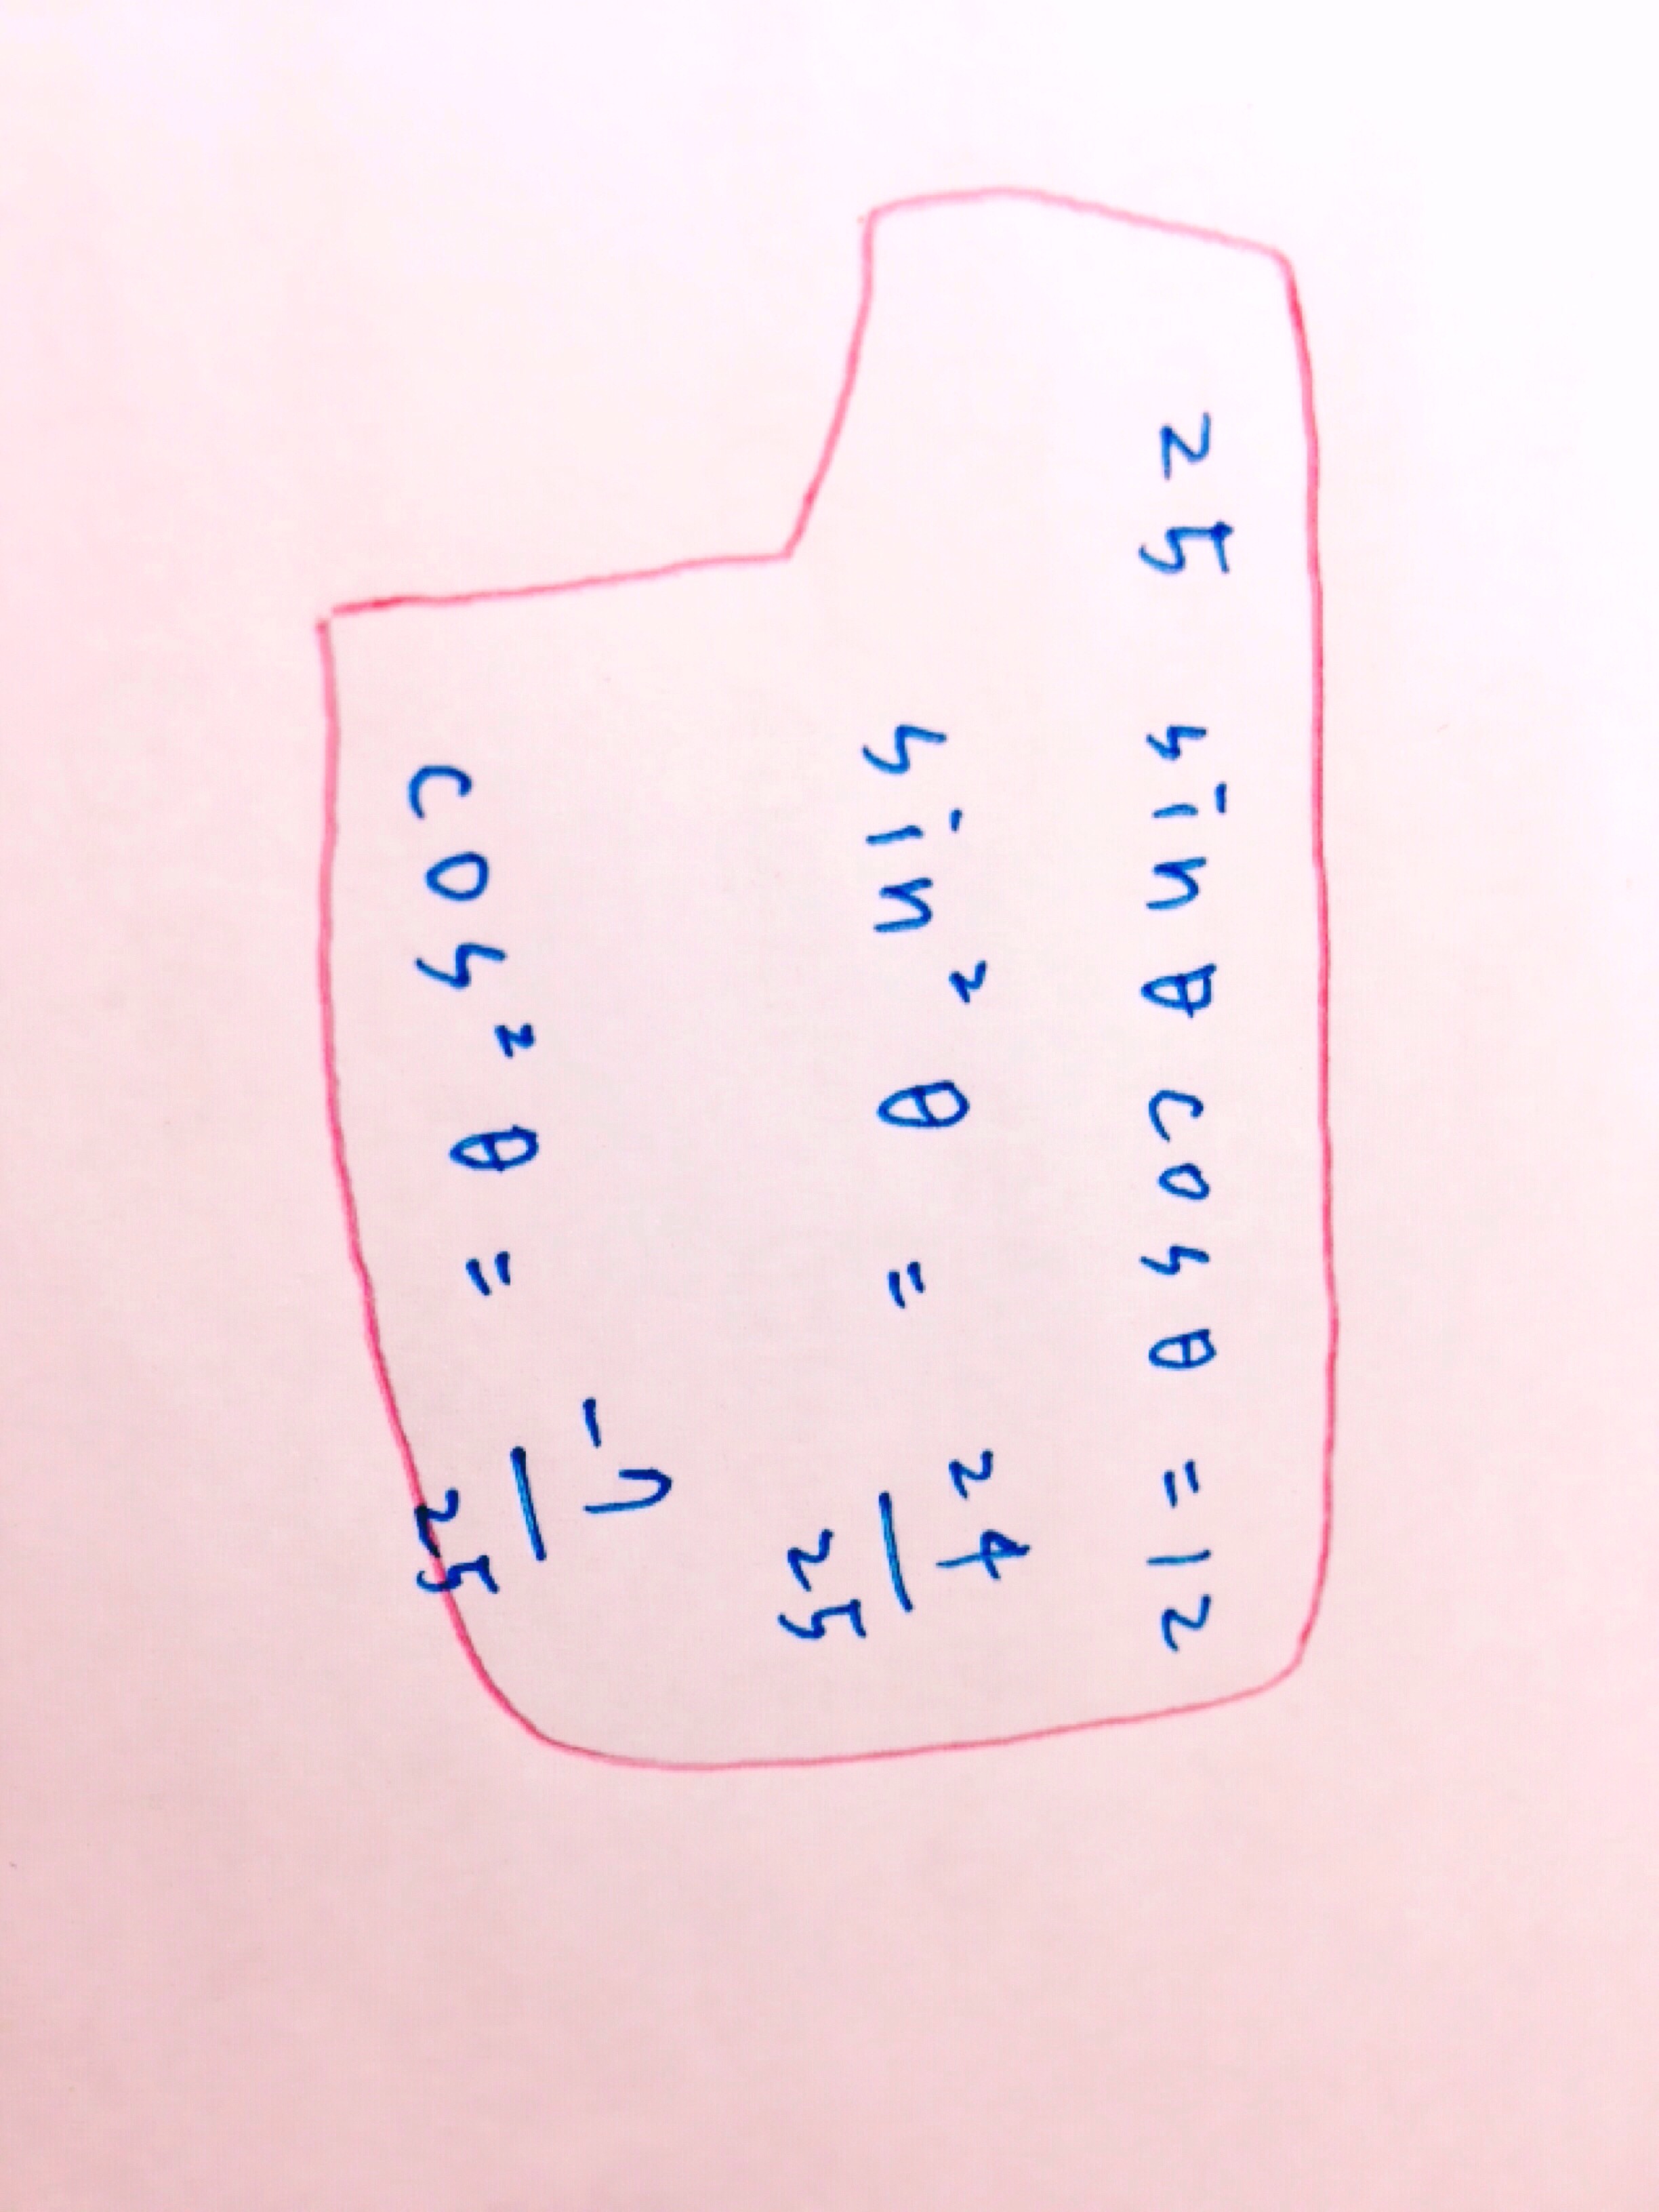 25 sin θ cos θ = 12
sin² θ = 24/25
cos² θ = -7/25